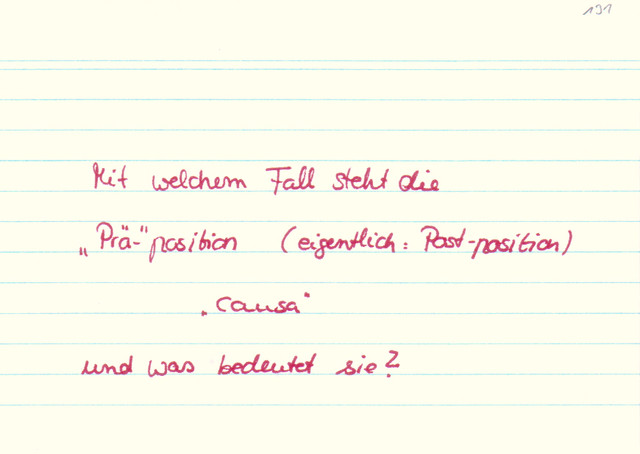 191
Mit welchem Fall steht die
„Prä-"position (eigentlich: Post-position)
„causa"
und was bedeutet sie?